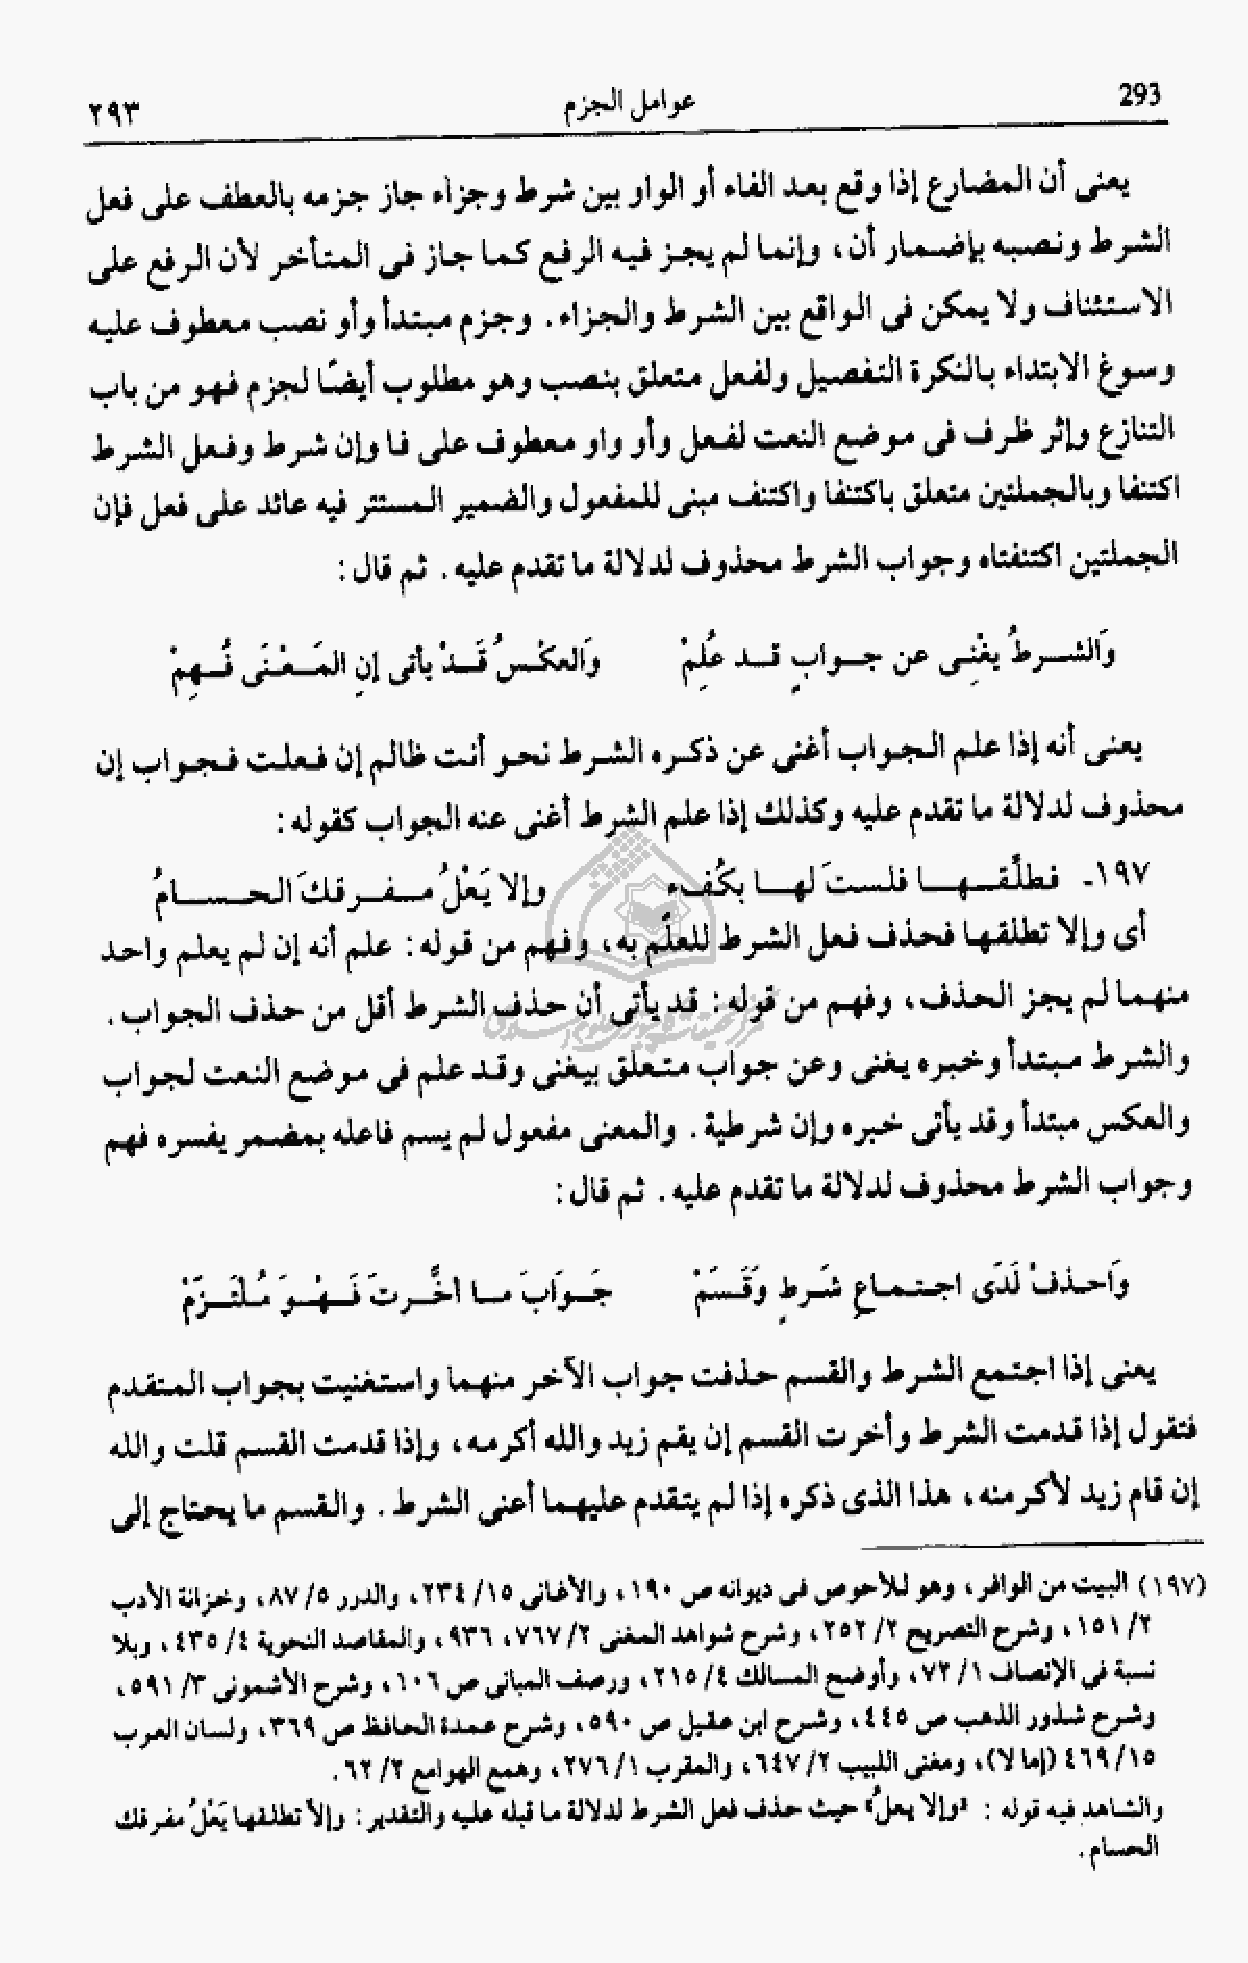 293
عوامل الجزم
٢٩٣
يعنى أن المضارع إذا وقع بعد الفاء أو الواو بين شرط وجزاء جاز جزمه بالعطف على فعل
الشرط ونصبه بإضمار أن ، وإنما لم يجز فيه الرفع كما جاز فى المتأخر لأن الرفع على
الاستئناف ولا يمكن فى الواقع بين الشرط والجزاء. وجزم مبتدأ وأو نصب معطوف عليه
وسوغ الابتداء بالنكرة التفصيل ولفعل متعلق بنصب وهو مطلوب أيضًا لجزم فهو من باب
التنازع وإثر ظرف فى موضع النعت لفعل وأو واو معطوف على فا وإن شرط وفعل الشرط
اكتنفا وبالجملتين متعلق باكتنفا واكتنف مبنى للمفعول والضمير المستتر فيه عائد على فعل فإن
الجملتين اكتنفتاه وجواب الشرط محذوف لدلالة ما تقدم عليه . ثم قال :
وَالشرطُ يغْنِى عن جوابٍ قد عُلِمْ وَالعكْسُ قَدْ يأتى إنِ المَعْنَى فُهِمْ
يعنى أنه إذا علم الجواب أغنى عن ذكره الشرط نحو أنت ظالم إن فعلت فجواب إن
محذوف لدلالة ما تقدم عليه وكذلك إذا علم الشرط أغنى عنه الجواب كقوله :
١٩٧- فطلَّقها فلستَ لها بكُفء وإلا يَعْلُ مفرقكَ الحسامُ
أى وإلا تطلقها فحذف فعل الشرط للعلْم به ، وفهم من قوله : علم أنه إن لم يعلم واحد
منهما لم يجز الحذف ، وفهم من قوله : قد يأتى أن حذف الشرط أقل من حذف الجواب .
والشرط مبتدأ وخبره يغنى وعن جواب متعلق بيغنى وقد علم فى موضع النعت لجواب
والعكس مبتدأ وقد يأتى خبره وإن شرطية . والمعنى مفعول لم يسم فاعله بمضمر يفسره فهم
وجواب الشرط محذوف لدلالة ما تقدم عليه . ثم قال :
وَاحذفْ لَدَى اجتماعِ شَرطٍ وَقَسَمْ جَوَابَ ما أخَّرتَ فَهْوَ مُلْتَزَمْ
يعنى إذا اجتمع الشرط والقسم حذفت جواب الآخر منهما واستغنيت بجواب المتقدم
فتقول إذا قدمت الشرط وأخرت القسم إن يقم زيد والله أكرمه ، وإذا قدمت القسم قلت والله
إن قام زيد لأكرمنه ، هذا الذى ذكره إذا لم يتقدم عليهما أعنى الشرط . والقسم ما يحتاج إلى
(١٩٧) البيت من الوافر ، وهو للأحوص فى ديوانه ص ١٩٠ ، والأغانى ١٥/ ٢٣٤ ، والدرر ٥/ ٨٧ ، وخزانة الأدب
٢/ ١٥١ ، وشرح التصريح ٢/ ٢٥٢ ، وشرح شواهد المغنى ٢/ ٧٦٧ ، ٩٣٦ ، والمقاصد النحوية ٤/ ٤٣٥ ، وبلا
نسبة فى الإنصاف ١/ ٧٢ ، وأوضح المسالك ٤/ ٢١٥ ، ورصف المبانى ص ١٠٦ ، وشرح الأشمونى ٣/ ٥٩١ ،
وشرح شذور الذهب ص ٤٤٥ ، وشرح ابن عقيل ص ٥٩٠ ، وشرح عمدة الحافظ ص ٣٦٩ ، ولسان العرب
١٥/ ٤٦٩ (إما لا) ، ومغنى اللبيب ٢/ ٦٤٧ ، والمقرب ١/ ٢٧٦ ، وهمع الهوامع ٢/ ٦٢ .
والشاهد فيه قوله : «وإلا يعلُ» حيث حذف فعل الشرط لدلالة ما قبله عليه والتقدير : وإلا تطلقها يَعْلُ مفرقك
الحسام .